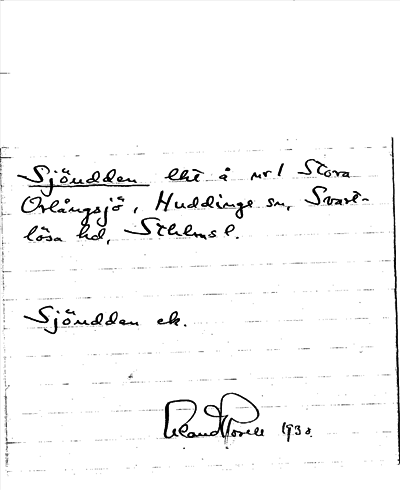 Sjöudden lht å nr 1 Stora
Orlångsjö, Huddinge sn, Svart-
lösa hd, Sthlms l.
Sjöudden ek.
1930